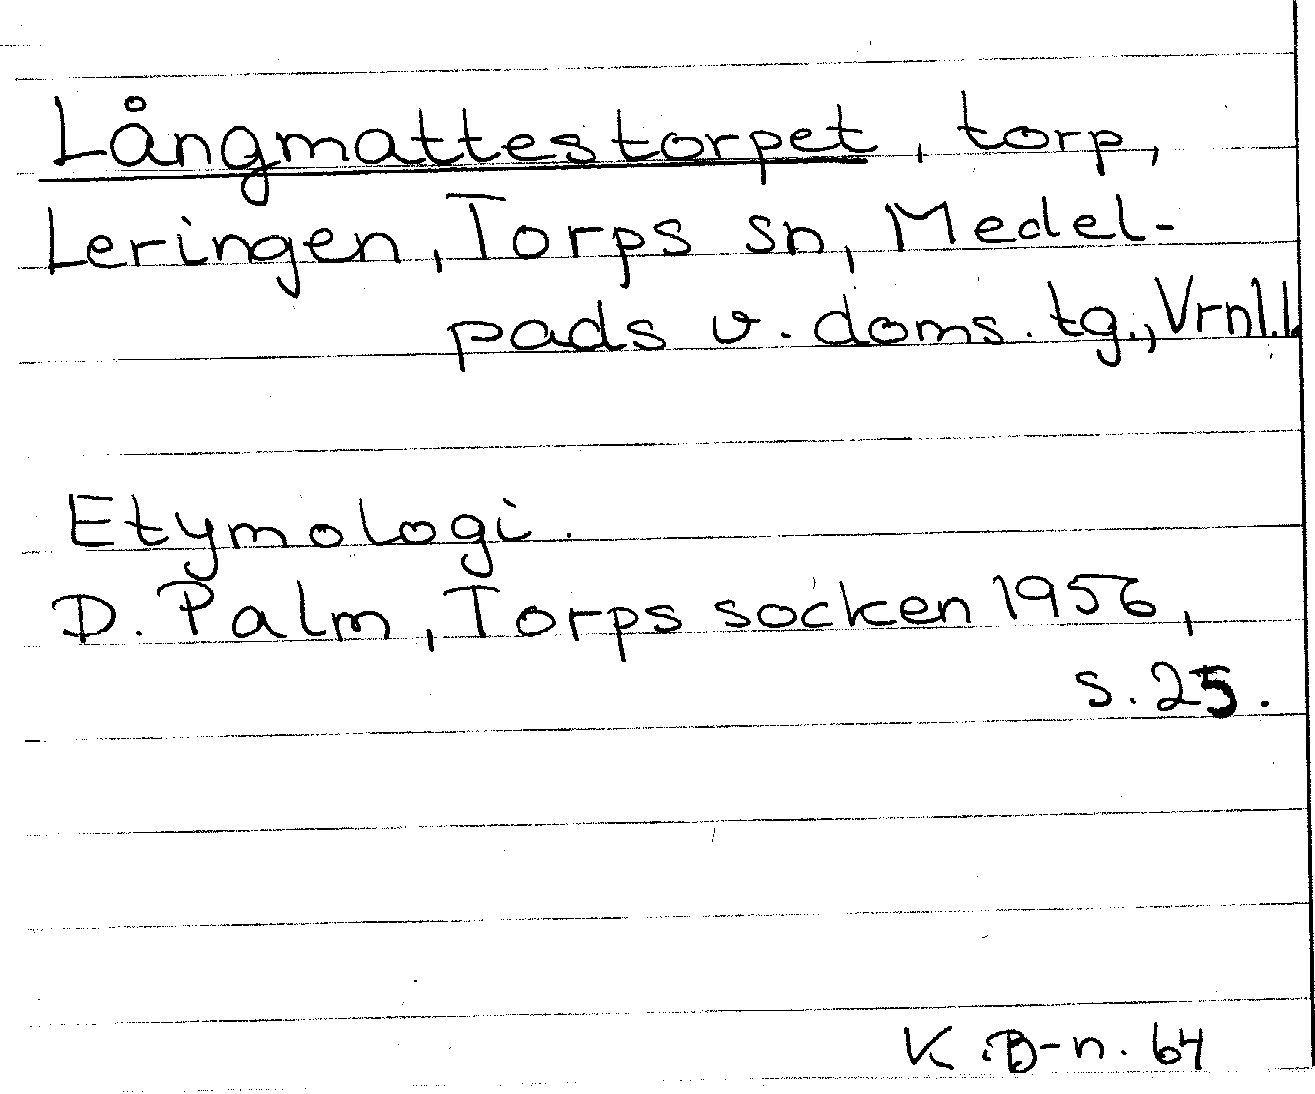 Långmattestorpet, torp,
Leringen, Torps sn, Medel-
pads v. doms. tg., Vrnl.l.
Etymologi.
D. Palm, Torps socken 1956,
s. 25.
K. B-n. 64